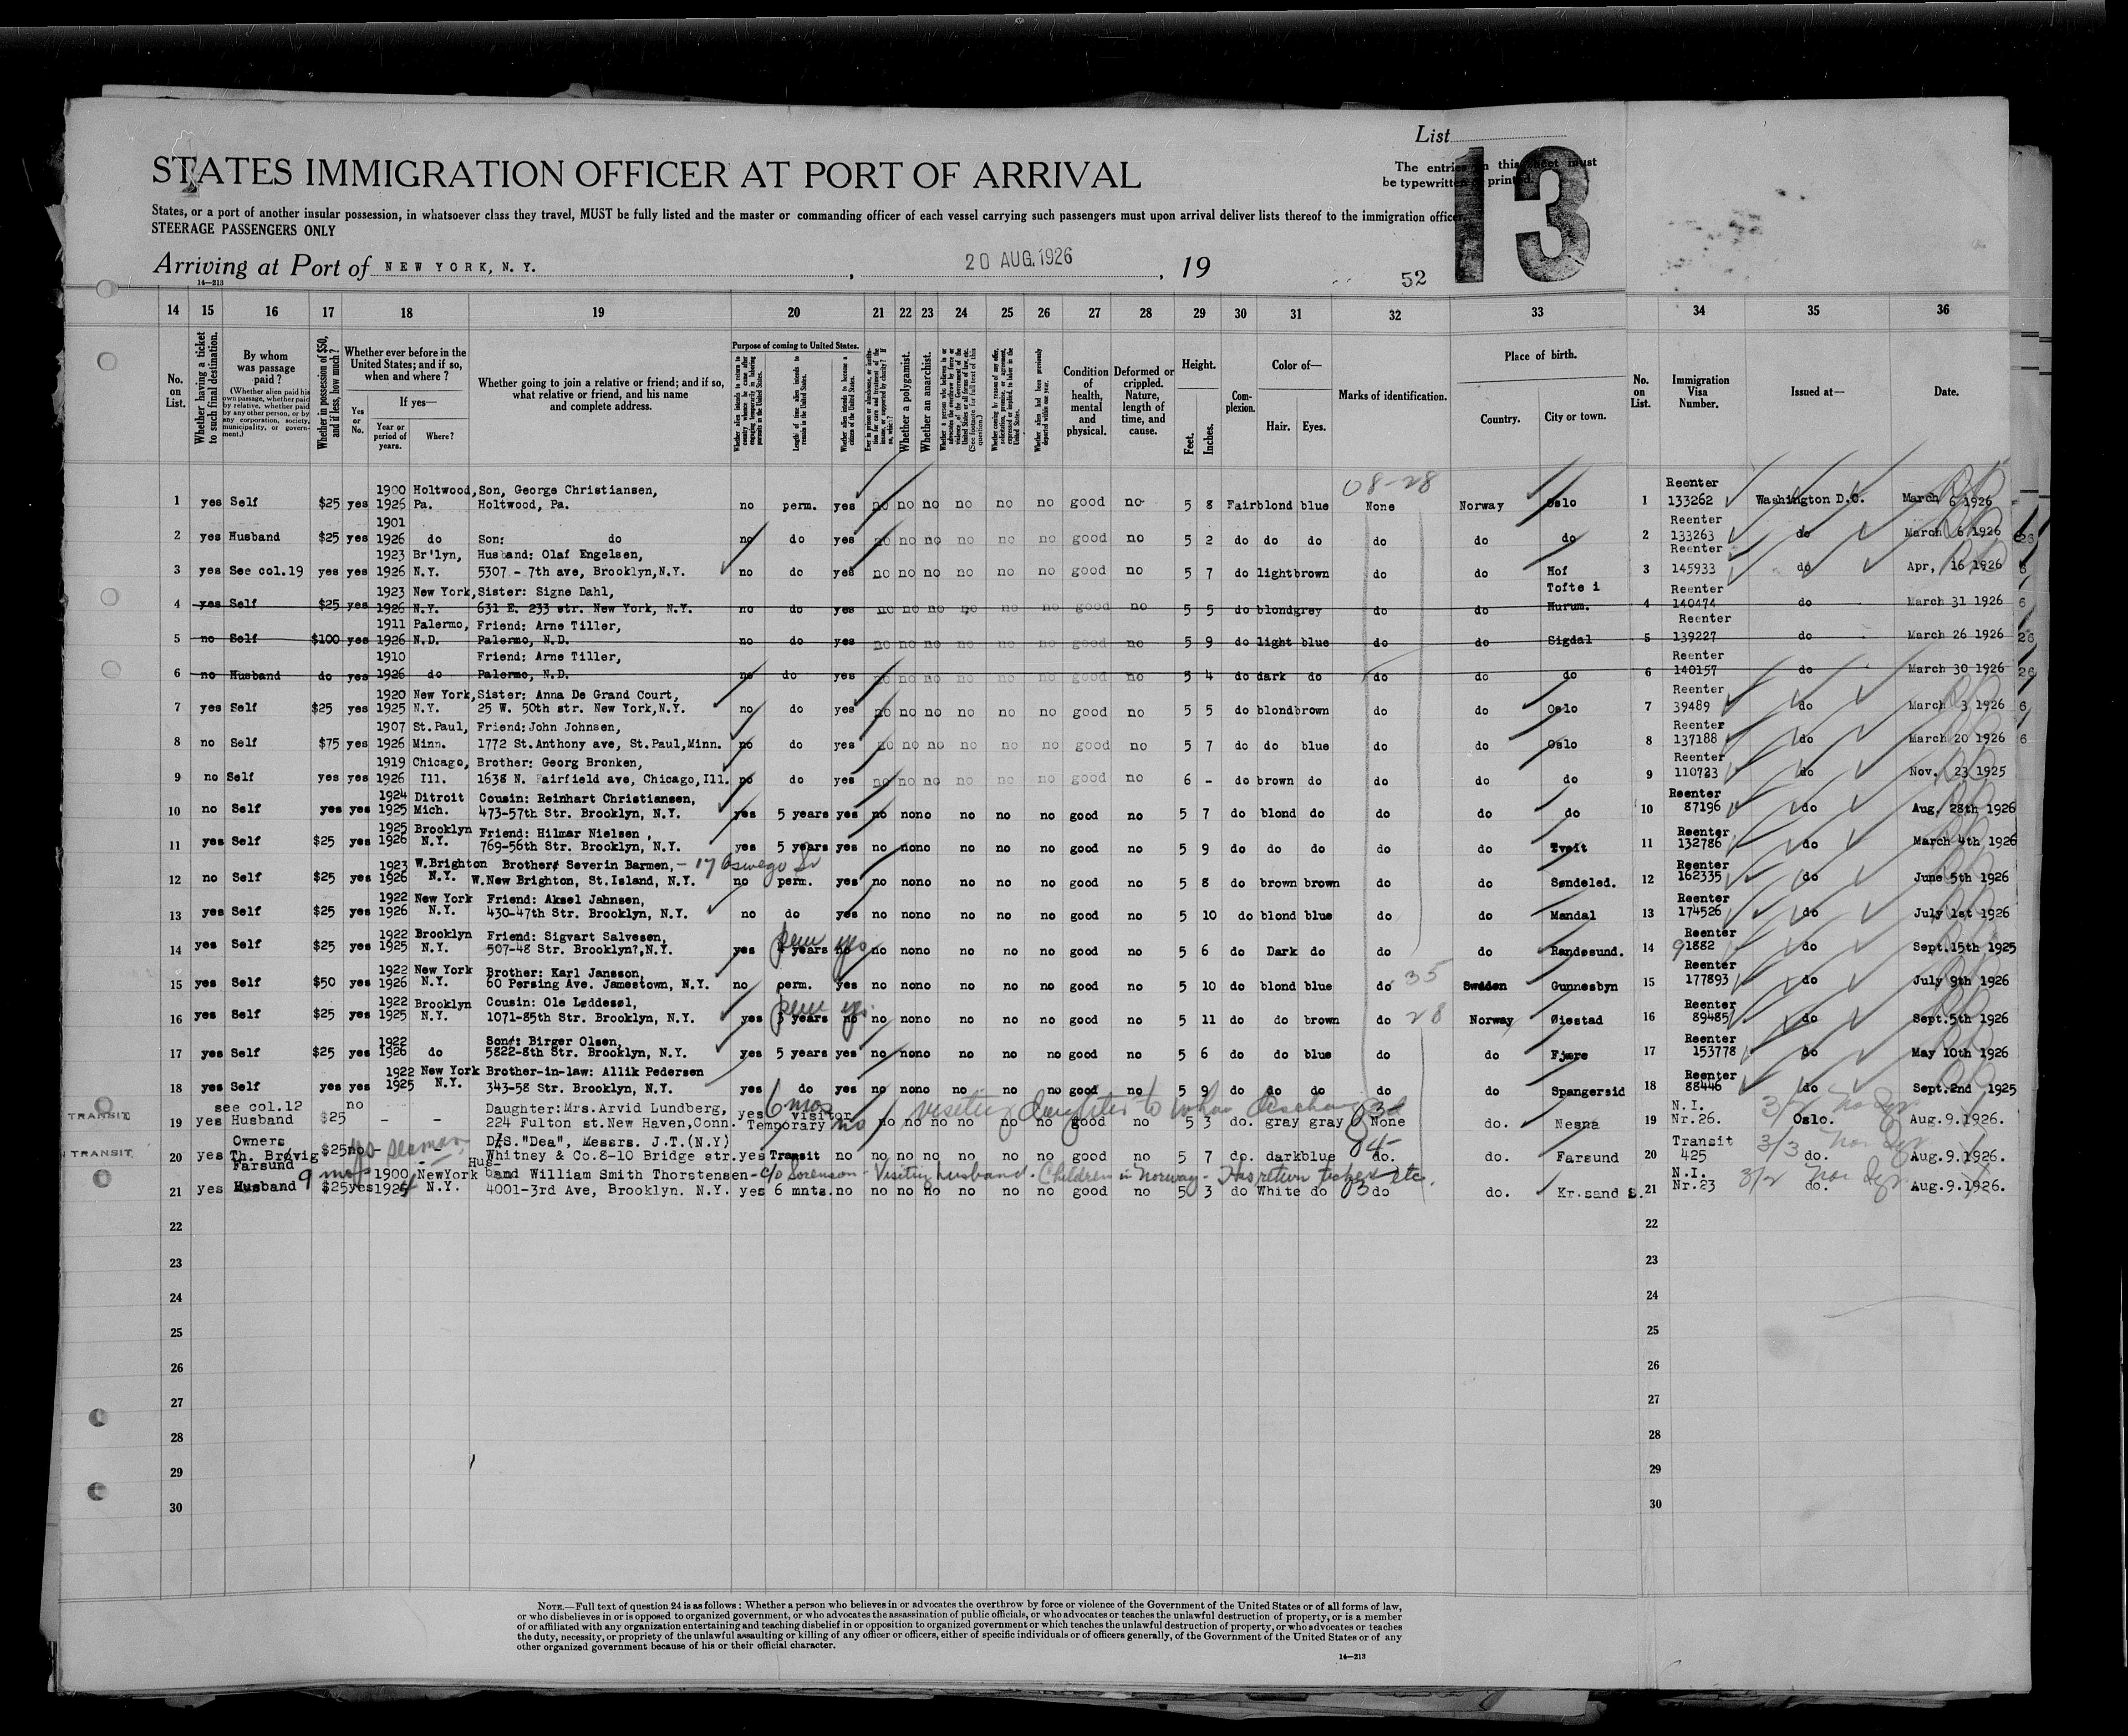 List
13
The entries on this sheet must
be typewritten or printed.
STATES IMMIGRATION OFFICER AT PORT OF ARRIVAL
States, or a port of another insular possession, in whatsoever class they travel, MUST be fully listed and the master or commanding officer of each vessel carrying such passengers must upon arrival deliver lists thereof to the immigration officer
STEERAGE PASSENGERS ONLY
Arriving at Port of NEW YORK, N. Y. , 20 AUG. 1926 , 19
52
14—213
14 15 16 17 18 19 20 21 22 23 24 25 26 27 28 29 30 31 32 33 34 35 36
No. on List.
Whether having a ticket to such final destination.
By whom was passage paid?
(Whether alien paid his own passage, whether paid by relative, whether paid by any other person, or by any corporation, society, municipality, or government.)
Whether in possession of $50, and if less, how much?
Whether ever before in the United States; and if so, when and where?
Yes or No.
If yes—
Year or period of years.
Where?
Whether going to join a relative or friend; and if so, what relative or friend, and his name and complete address.
Purpose of coming to United States.
Whether a polygamist.
Whether an anarchist.
Condition of health, mental and physical.
Deformed or crippled. Nature, length of time, and cause.
Height.
Feet.
Inches.
Complexion.
Color of—
Hair.
Eyes.
Marks of identification.
Place of birth.
Country.
City or town.
No. on List.
Immigration Visa Number.
Issued at—
Date.
08-28
1900 Holtwood, Son, George Christiansen, Reenter
1 yes Self $25 yes 1926 Pa. Holtwood, Pa. no perm. yes no no no no no no good no 5 8 Fair blond blue None Norway Oslo 1 133262 Washington D.C. March 6 1926
1901 Reenter
2 yes Husband $25 yes 1926 do Son: do no do yes no no no no no no good no 5 2 do do do do do do 2 133263 do March 6 1926
1923 Br'lyn, Husband: Olaf Engelsen, Reenter
3 yes See col.19 yes yes 1926 N.Y. 5307 - 7th ave, Brooklyn,N.Y. no do yes no no no no no no good no 5 7 do light brown do do Hof 3 145933 do Apr, 16 1926
1923 New York, Sister: Signe Dahl, Tofte i Reenter
4 yes Self $25 yes 1926 N.Y. 631 E. 233 str. New York, N.Y. no do yes no no no no no no good no 5 5 do blond grey do do Hurum. 4 140474 do March 31 1926
1911 Palermo, Friend: Arne Tiller, Reenter
5 no Self $100 yes 1926 N.D. Palermo, N.D. no do yes no no no no no no good no 5 9 do light blue do do Sigdal 5 139227 do March 26 1926
1910 Friend: Arne Tiller, Reenter
6 no Husband do yes 1926 do Palermo, N.D. no do yes no no no no no no good no 5 4 do dark do do do do 6 140157 do March 30 1926
1920 New York, Sister: Anna De Grand Court, Reenter
7 yes Self $25 yes 1925 N.Y. 25 W. 50th str. New York,N.Y. no do yes no no no no no no good no 5 5 do blond brown do do Oslo 7 39489 do March 3 1926
1907 St.Paul, Friend:John Johnsen, Reenter
8 no Self $75 yes 1926 Minn. 1772 St.Anthony ave, St.Paul,Minn. no do yes no no no no no no good no 5 7 do do blue do do Oslo 8 137188 do March 20 1926
1919 Chicago, Brother: Georg Bronken, Reenter
9 no Self yes yes 1926 Ill. 1638 N. Fairfield ave, Chicago,Ill. no do yes no no no no no no good no 6 - do brown do do do do 9 110723 do Nov. 23 1925
1924 Ditroit Cousin: Reinhart Christiansen, Reenter
10 no Self yes yes 1925 Mich. 473-57th Str. Brooklyn, N.Y. yes 5 years yes no nono no no no good no 5 7 do blond do do do do 10 87196 do Aug, 28th 1926
1925 Brooklyn Friend: Hilmar Nielsen , Reenter
11 yes Self $25 yes 1926 N.Y. 769-56th Str. Brooklyn, N.Y. yes 5 years yes no nono no no no good no 5 9 do do do do do Tveit 11 132786 do March 4th 1926
1923 W.Brighton Brother: Severin Barmen, - 17 Oswego St Reenter
12 no Self $25 yes 1926 N.Y. W.New Brighton, St.Island, N.Y. no perm. yes no nono no no no good no 5 8 do brown brown do do Søndeled. 12 162335 do June 5th 1926
1922 New York Friend: Aksel Jahnsen, Reenter
13 yes Self $25 yes 1926 N.Y. 430-47th Str. Brooklyn, N.Y. no do yes no nono no no no good no 5 10 do blond blue do do Mandal 13 174526 do July 1st 1926
1922 Brooklyn Friend: Sigvart Salvesen, perm yes Reenter
14 yes Self $25 yes 1925 N.Y. 507-48 Str. Brooklyn?,N.Y. yes 4 years no no nono no no no good no 5 6 do Dark do do do Randesund. 14 91882 do Sept.15th 1925
1922 New York Brother: Karl Jansson, 35 Reenter
15 yes Self $50 yes 1926 N.Y. 60 Persing Ave. Jamestown, N.Y. no perm. yes no nono no no no good no 5 10 do blond blue do Sweden Gunnesbyn 15 177893 do July 9th 1926
1922 Brooklyn Cousin: Ole Løddesøl, perm yes Reenter
16 yes Self $25 yes 1925 N.Y. 1071-85th Str. Brooklyn, N.Y. yes 3 years no no nono no no no good no 5 11 do do brown do 28 Norway Øiestad 16 89485 do Sept.5th 1926
1922 Son: Birger Olsen, Reenter
17 yes Self $25 yes 1926 do 5822-8th Str. Brooklyn, N.Y. yes 5 years yes no nono no no no good no 5 6 do do blue do do Fjære 17 153778 do May 10th 1926
1922 New York Brother-in-law: Allik Pedersen Reenter
18 yes Self yes yes 1925 N.Y. 343-58 Str. Brooklyn, N.Y. yes do yes no nono no no no good no 5 9 do do do do do Spangersid 18 88446 do Sept.2nd 1925
see col.12 no Daughter:Mrs.Arvid Lundberg, 6 mos visitor visiting daughter to whom N.I.
TRANSIT 19 yes Husband $25 - - 224 Fulton st.New Haven,Conn. yes Temporary no no no no no no no good no 5 3 do. gray gray None do. Nesna 19 Nr.26. Oslo. Aug.9.1926.
Owners D/S."Dea", Messrs. J.T.(N.Y) Transit
IN TRANSIT 20 yes Th. Brøvig Farsund $25 no yes seaman Whitney & Co.8-10 Bridge str. yes Transit no no no no no no no good no 5 7 do. dark blue do. do. Farsund 20 425 3/3 do. Aug.9.1926.
9 mos 1900 NewYork Husband William Smith Thorstensen - c/o Sorenson - Visiting husband. Children in Norway - Has return ticket etc. N.I.
21 yes Husband $25 yes 1924 N.Y. 4001-3rd Ave, Brooklyn. N.Y. yes 6 mnts. no no no no no no no good no 5 3 do White do do do. Kr.sand S. 21 Nr.23 3/2 do. Aug.9.1926.
22 22
23 23
24 24
25 25
26 26
27 27
28 28
29 29
30 30
NOTE.—Full text of question 24 is as follows: Whether a person who believes in or advocates the overthrow by force or violence of the Government of the United States or of all forms of law,
or who disbelieves in or is opposed to organized government, or who advocates the assassination of public officials, or who advocates or teaches the unlawful destruction of property, or is a member
of or affiliated with any organization entertaining and teaching disbelief in or opposition to organized government or which teaches the unlawful destruction of property, or who advocates or teaches
the duty, necessity, or propriety of the unlawful assaulting or killing of any officer or officers, either of specific individuals or of officers generally, of the Government of the United States or of any
other organized government because of his or their official character.
14—213